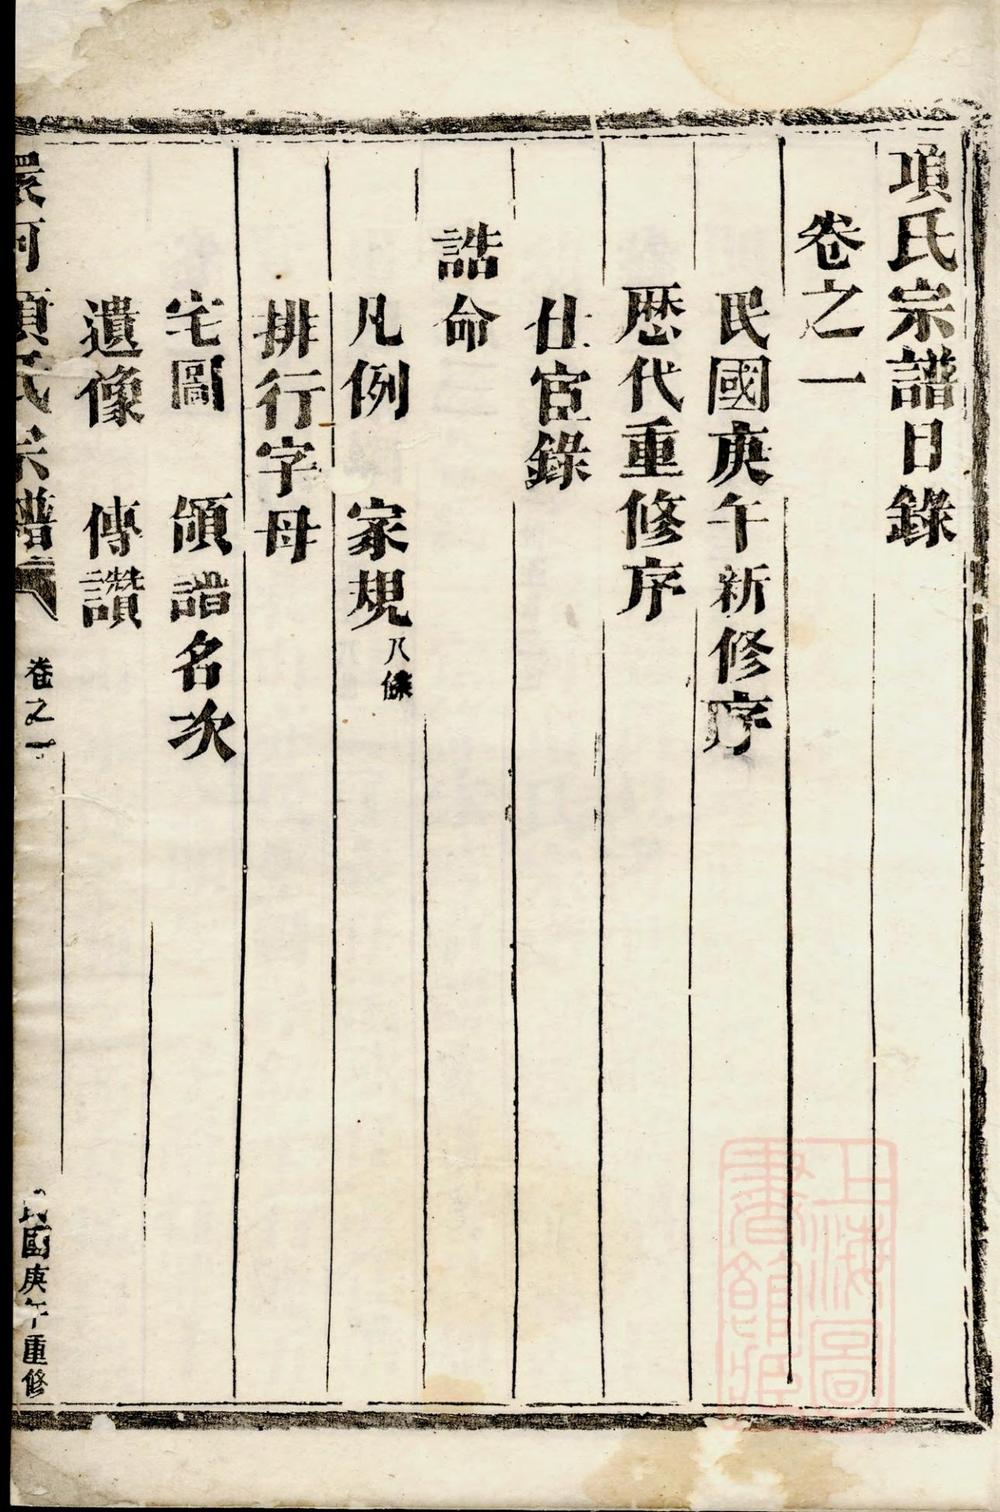 項氏宗譜目錄
卷之一
民國庚午新修序
歷代重修序
仕宦錄
誥命
凡例 家規八條
排行字母
宅圖 領譜名次
遺像 傳讚
環河項氏宗譜 卷之一 民國庚午重修
上海圖書館藏